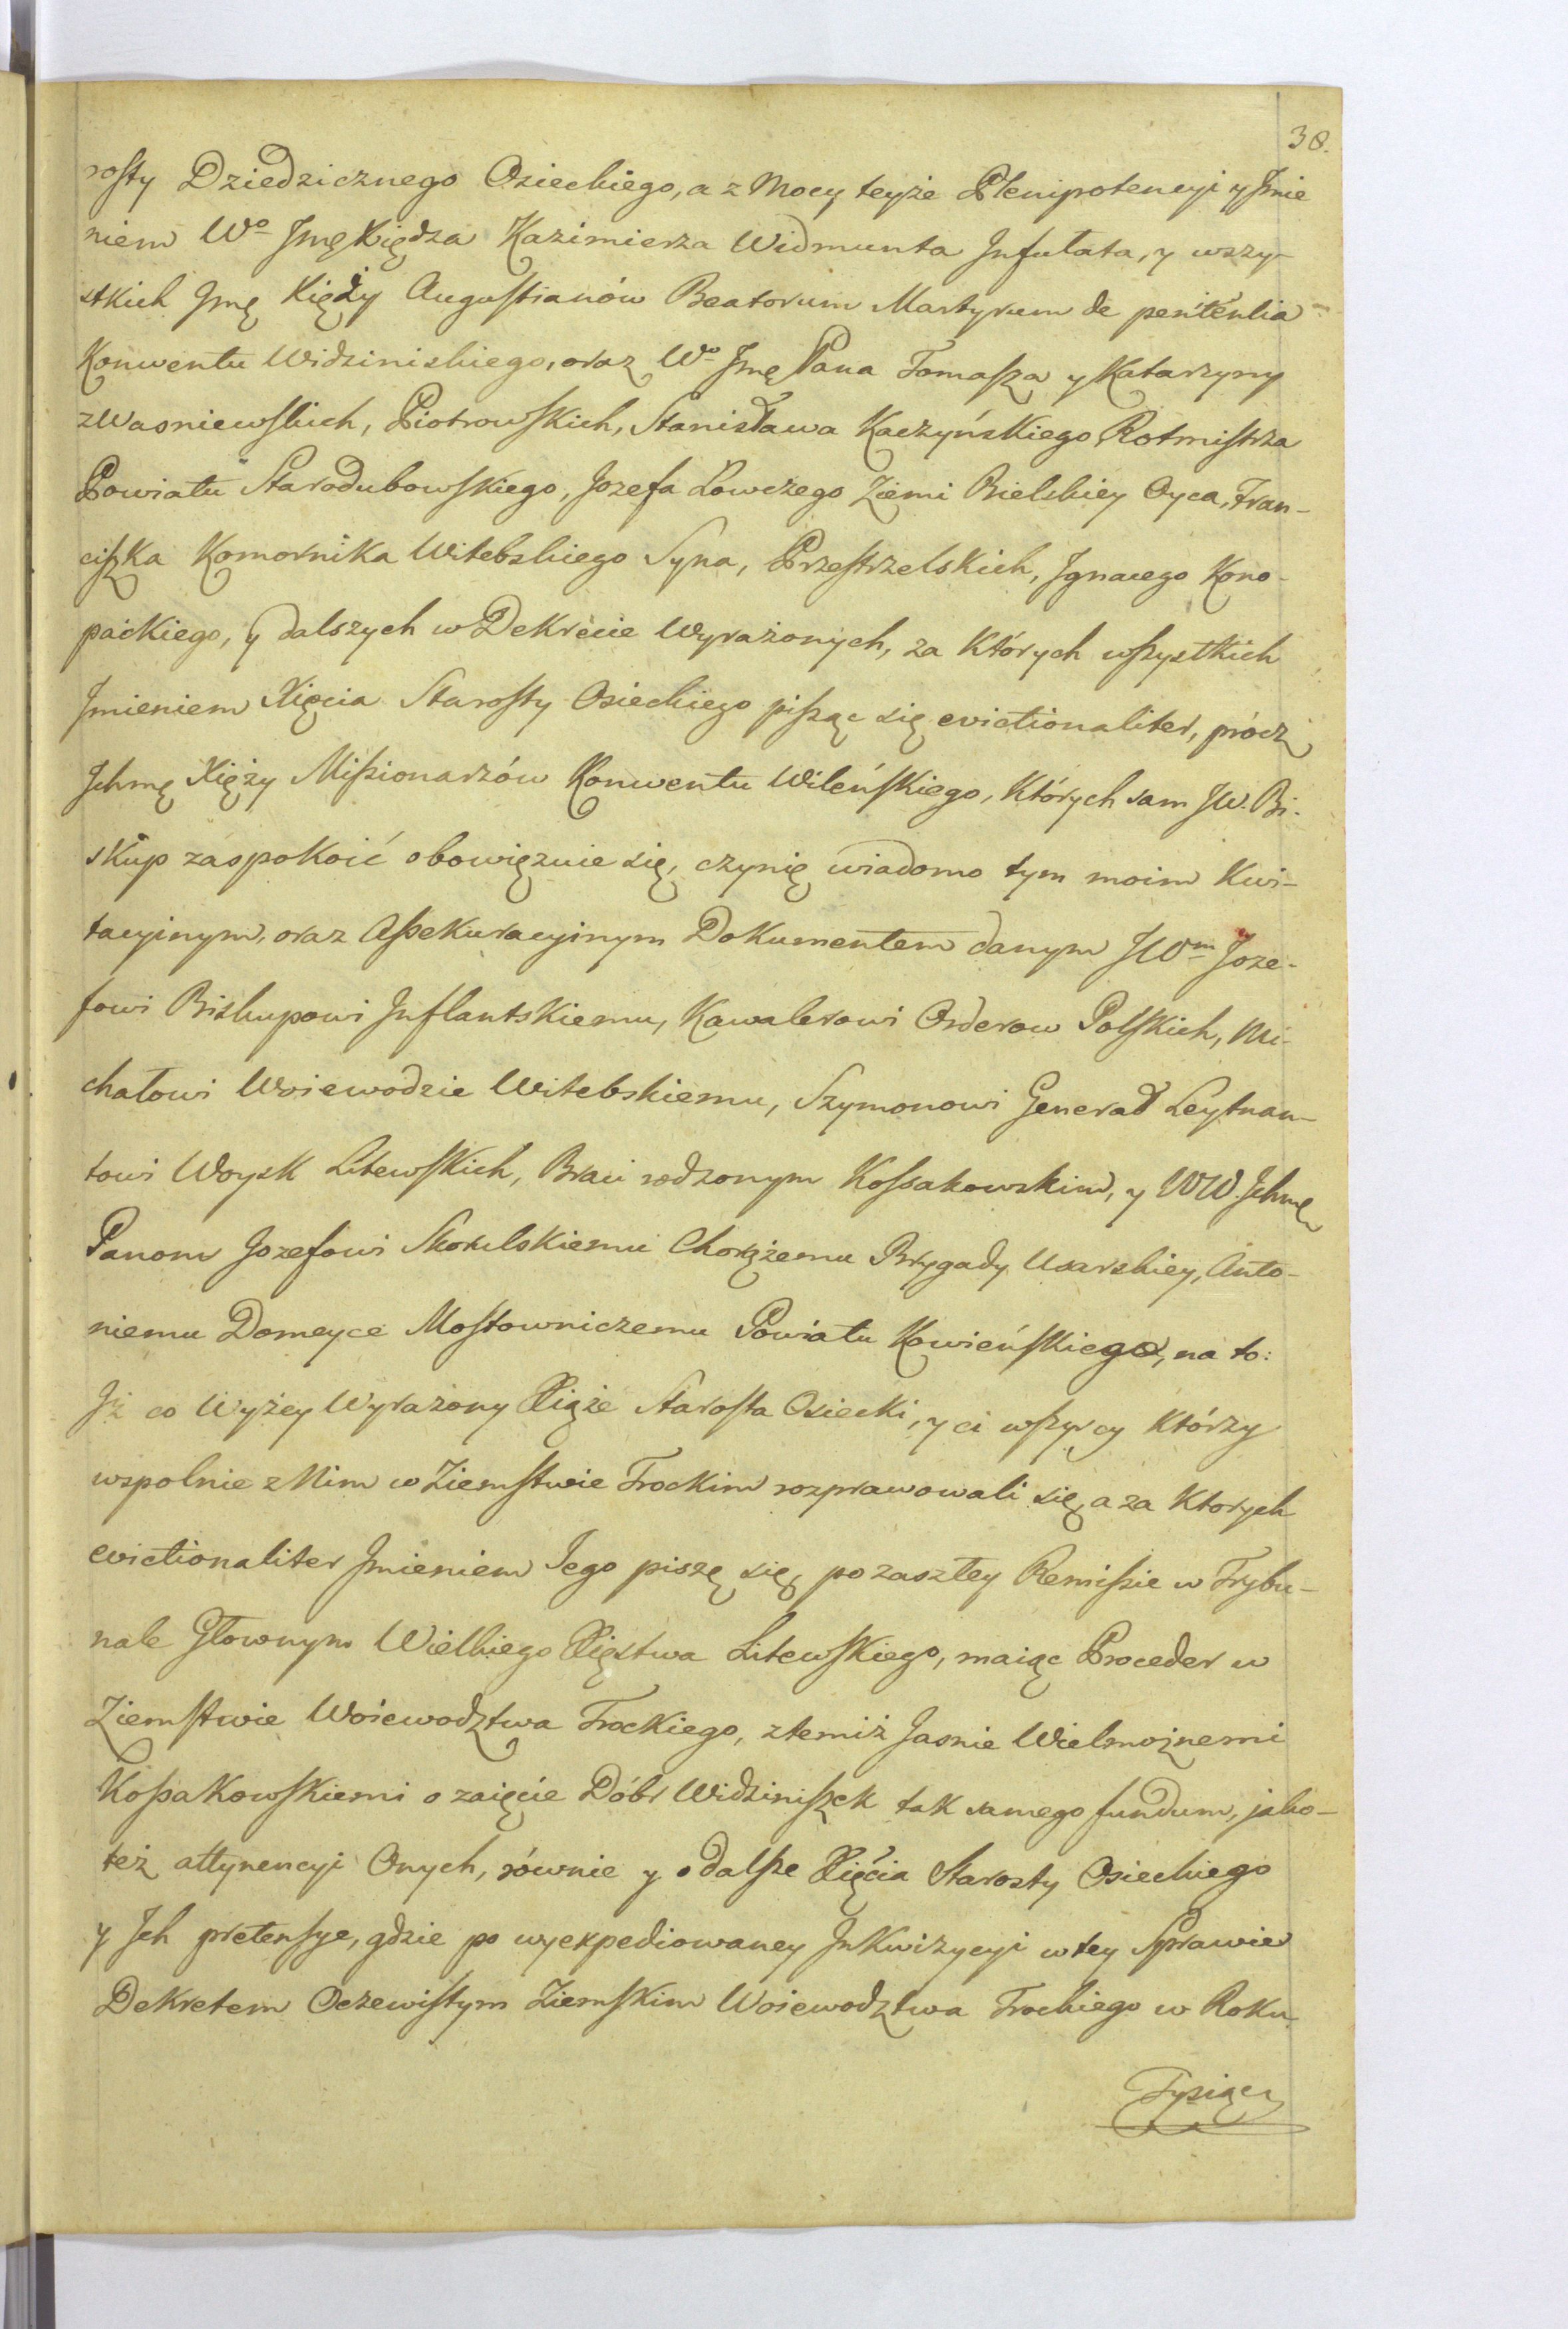 38.
rosty Dziedzicznego Osieckiego, a z Mocy teyże Plenipotencyi y Jmie
niem Wo Jmę Xiędza Kazimierza Widmunta Jnfułata, y wszy-
stkich Jmę Xięży Augustianów Beatorum Martyrum de penitentia
Konwentu Widziniskiego, oraz Wo Jmę Pana Tomasza y Katarzyny
z Wasniewskich, Piotrowskich, Stanisława Kaczyńskiego Rotmistrza
Powiatu Starodubowskiego, Jozefa Łowczego Ziemi Bielskiey Oyca, Fran-
ciszka Komornika Witebskiego Syna, Przestrzelskich, Jgnacego Kono-
packiego, y dalszych w Dekrecie Wyrażonych, za Których wszystkich
Jmieniem Xięcia Starosty Osieckiego pisząc się evictionaliter, prócz
Jchmę Xięży Missionarzów Konwentu Wileńskiego, Których sam JW. Bi-
skup zaspokoić obowięzuie się, czynię wiadomo tym moim Kwi-
tacyinym, oraz Assekuracyinym Dokumentem danym JWm Joze-
fowi Biskupowi Jnflantskiemu, Kawalerowi Orderow Polskich, Mi-
chałowi Woiewodzie Witebskiemu, Szymonowi Generał Leytnan-
towi Woysk Litewskich, Braci rodzonym Kossakowskim, y WW. Jchmę
Panom Jozefowi Skorulskiemu Chorążemu Brygady Usarskiey, Anto-
niemu Domeyce Mostowniczemu Powiatu Kowieńskiego, na to:
Jż co Wyżey Wyrażony Xiąże Starosta Osiecki, y ci wszyscy Którzy
wspolnie z Nim w Ziemstwie Trockim rozprawowali się, a za Ktorych
evictionaliter Jmieniem Jego piszę się, po zaszłey Remissie w Trybu-
nale Głownym Wielkiego Xięstwa Litewskiego, maiąc Proceder w
Ziemstwie Woiewodztwa Trockiego, z temiż Jasnie Wielmożnemi
Kossakowskiemi o zaięcie Dóbr Widziniszek tak samego fundum, jako-
też attynencyi Onych, równie y o dalsze Xięcia Starosty Osieckiego
y Jch pretensye, gdzie po wyexpediowaney Jnkwizycyi w tey Sprawie
Dekretem Oczewistym Ziemskim Woiewodztwa Trockiego w Roku
Tysiącz